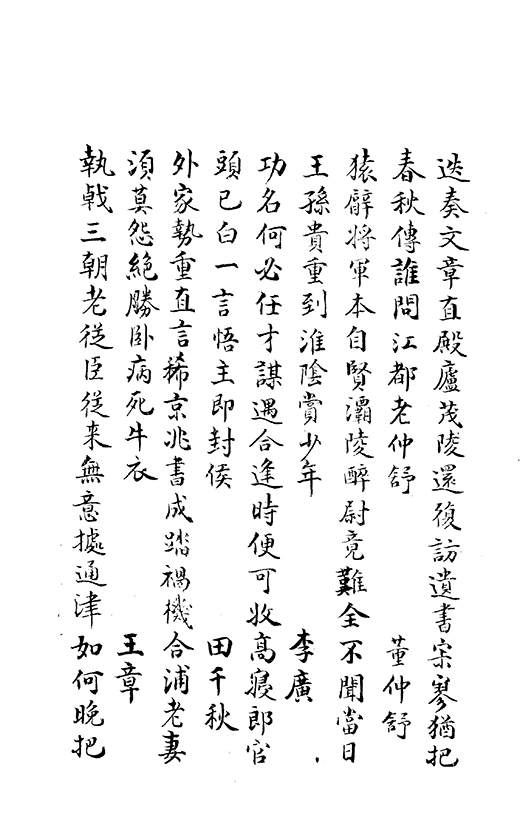 迭奏文章直殿廬茂陵還復訪遺書寂寥猶把
春秋傳誰問江都老仲舒　董仲舒
猿臂將軍本自賢灞陵醉尉竟難全不聞當日
王孫貴重到淮陰賞少年　李廣
功名何必任才謀遇合逢時便可收高寢郎官
頭已白一言悟主即封侯　田千秋
外家勢重直言稀京兆書成踏禍機合浦老妻
須莫怨絶勝卧病死牛衣　王章
執戟三朝老從臣從来無意據通津如何晚把